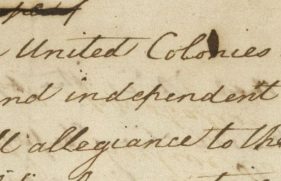 United Colonies
nd independent
ll allegiance to the